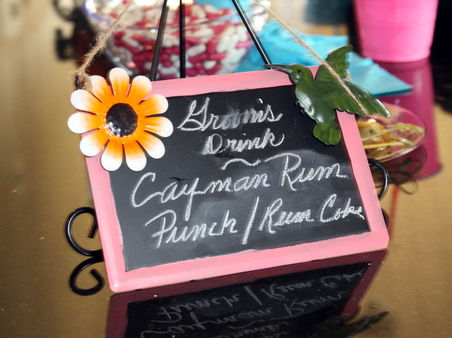 Groom's
Drink
~
Cayman Rum
Punch / Rum Coke